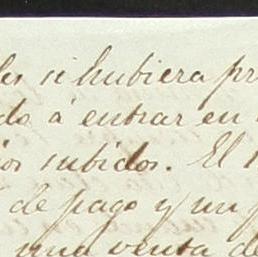 les si hubiera pr
do á entrar en
ios subidos. El
de pago y un p
una venta de